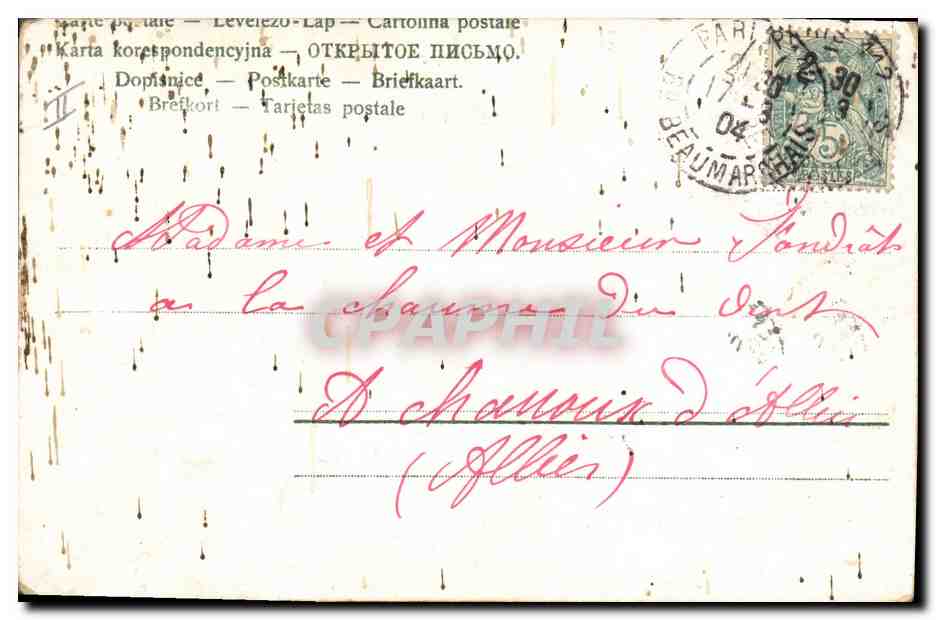 Carte postale — Levelező-Lap — Cartolina postale
Karta korespondencyjna — ОТКРЫТОЕ ПИСЬМО.
Dopisnice — Postkarte — Briefkaart.
Brefkort — Tarjetas postale
II
PARIS
17
30
3
04
BEAUMARCHAIS
5
POSTES
Madame et Monsieur
a la chaume du
CPAPHIL
A d'Allier
(Allier)